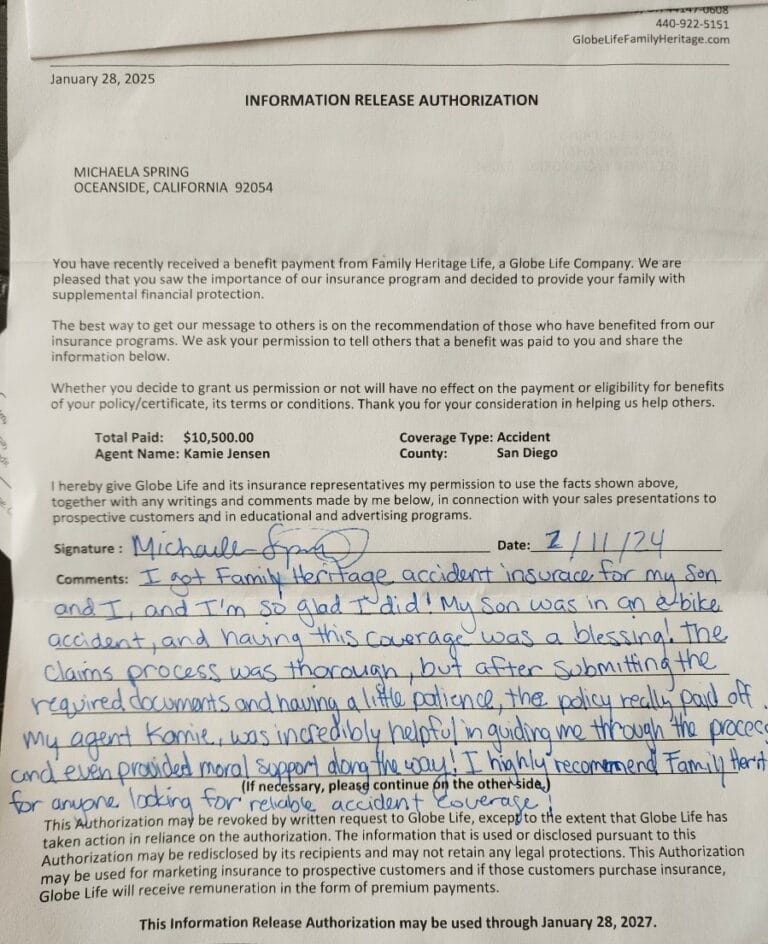 440-922-5151
GlobeLifeFamilyHeritage.com
January 28, 2025
INFORMATION RELEASE AUTHORIZATION
MICHAELA SPRING
OCEANSIDE, CALIFORNIA 92054
You have recently received a benefit payment from Family Heritage Life, a Globe Life Company. We are
pleased that you saw the importance of our insurance program and decided to provide your family with
supplemental financial protection.
The best way to get our message to others is on the recommendation of those who have benefited from our
insurance programs. We ask your permission to tell others that a benefit was paid to you and share the
information below.
Whether you decide to grant us permission or not will have no effect on the payment or eligibility for benefits
of your policy/certificate, its terms or conditions. Thank you for your consideration in helping us help others.
Total Paid: $10,500.00 Coverage Type: Accident
Agent Name: Kamie Jensen County: San Diego
I hereby give Globe Life and its insurance representatives my permission to use the facts shown above,
together with any writings and comments made by me below, in connection with your sales presentations to
prospective customers and in educational and advertising programs.
Signature : Michaela Spring Date: 2/11/24
Comments: I got Family Heritage accident insurace for my son
and I, and I'm so glad I did! My son was in an e-bike
accident, and having this coverage was a blessing! The
claims process was thorough, but after submitting the
required documents and having a little patience, the policy really paid off.
My agent Kamie, was incredibly helpful in guiding me through the process
and even provided moral support along the way! I highly recommend Family Herit
(If necessary, please continue on the other side.)
for anyone looking for reliable accident coverage!
This Authorization may be revoked by written request to Globe Life, except to the extent that Globe Life has
taken action in reliance on the authorization. The information that is used or disclosed pursuant to this
Authorization may be redisclosed by its recipients and may not retain any legal protections. This Authorization
may be used for marketing insurance to prospective customers and if those customers purchase insurance,
Globe Life will receive remuneration in the form of premium payments.
This Information Release Authorization may be used through January 28, 2027.